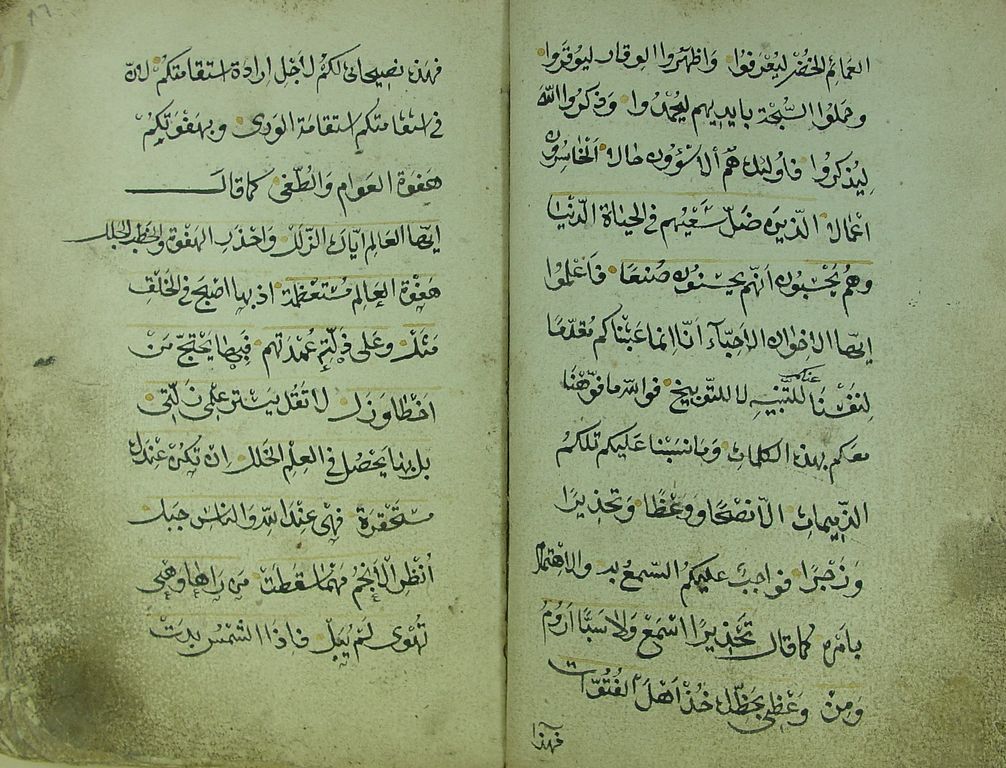 العمائم الخضر ليعرفوا واظهروا الوقار ليوقروا
وحملوا السبحة بايديهم ليحمدوا وذكروا الله
ليذكروا فاولئك هم الاخسرون حالا الخاسرون
اعمالا الذين ضل سعيهم في الحياة الدنيا
وهم يحسبون انهم يحسنون صنعا فاعلموا
ايها الاخوان الاحباء انا انما عنيناكم مقدما
لنفسنا للتنبيه لا للتوبيخ فوالله ما فوهنا
معكم بهذه الكلمات وما نسبنا عليكم تلكم
الذميمات الا نصحا ووعظا وتحذيرا
وزجرا فواجب عليكم السمع به والاهتمام
بامره كما قال تحذيرا اسمع ولا سبا اروم
ومن وعظي بحظك خذ اهل الفتوات
فهذا
٨٦
فهذه نصيحاتي لكم لاجل ارادة استقامتكم لان
في استقامتكم استقامة الورى وبهفوتكم
هفوة العوام والطغى كما قال
ايها العالم اياك الزلل واحذر الهفوة والخطب الجلل
هفوة العالم مستعظمة اذ بها اصبح في الخلق
مثل وعلى زلته عمدتهم فبها يحتج من
اخطا وزل لا تقل يستر علي زلتي
بل بها يحصل في العلم الخلل ان تكن عندك
مستحقرة فهي عند الله والناس جبل
انظر الانجم مهما سقطت من راها وهي
تهوى لم يبل فاذا الشمس بدت